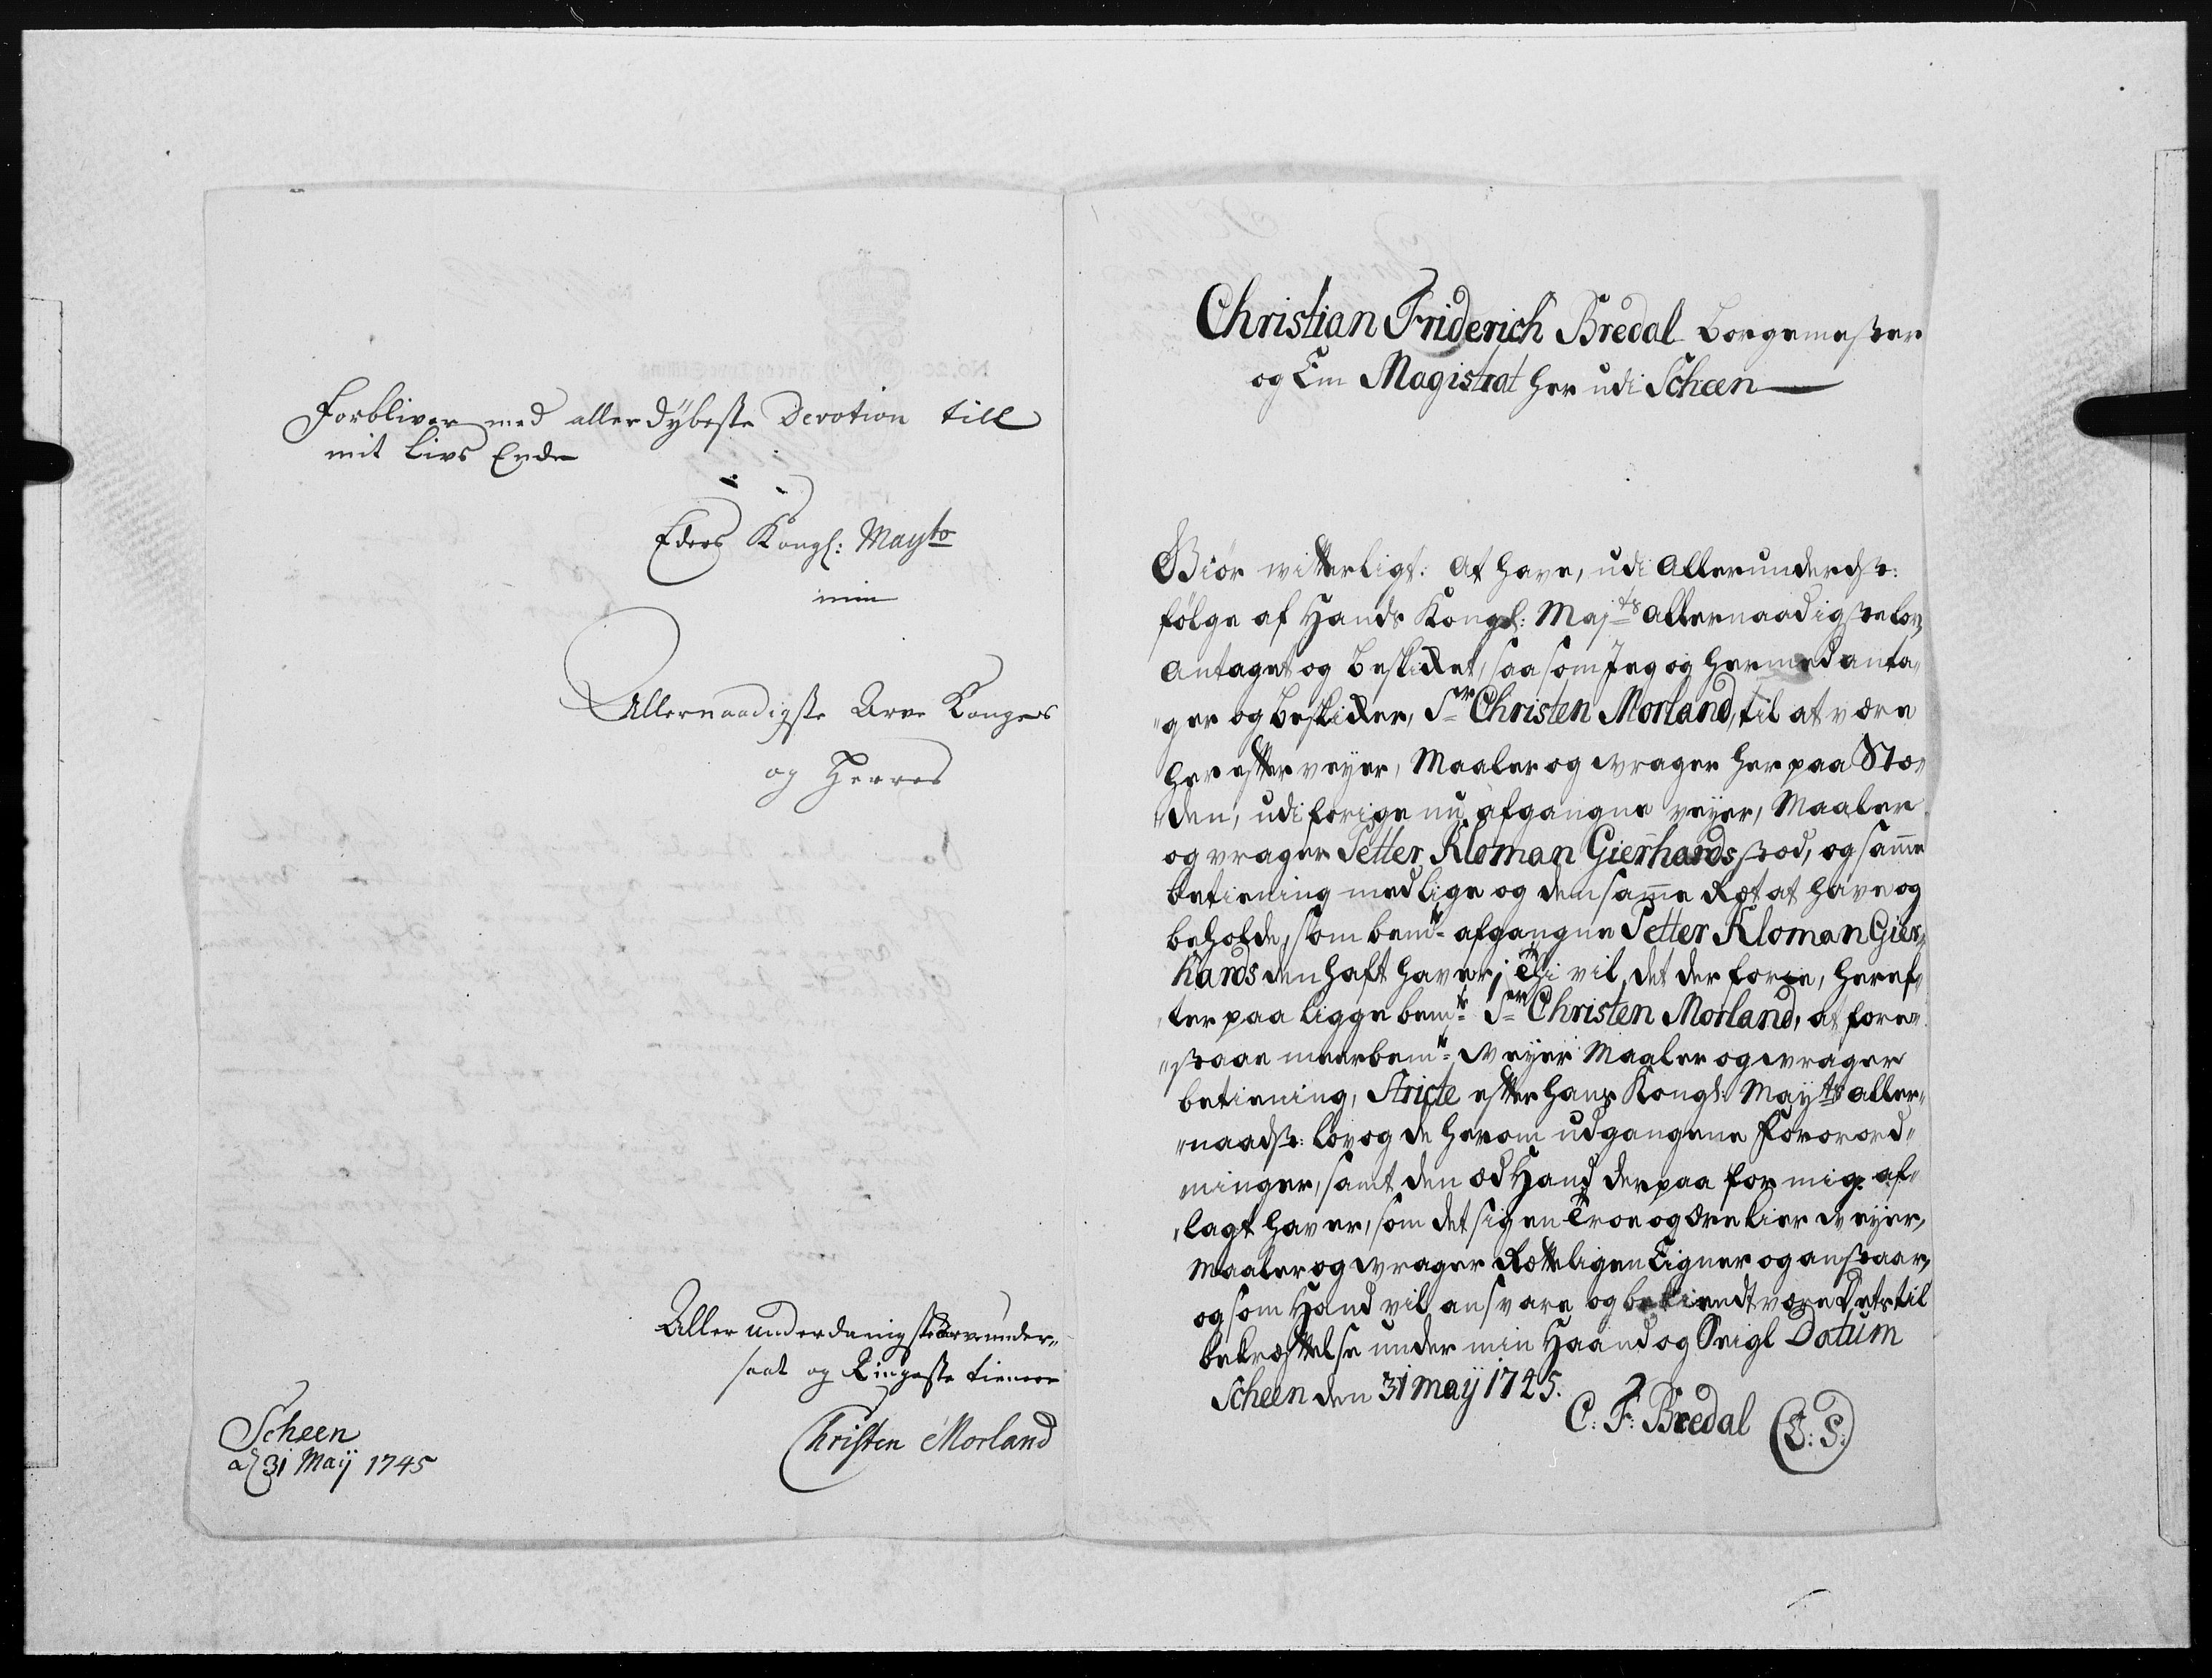 Forbliver med allerdÿbeste Devotion till
mit Livs Ende
Eders Kongl: Mayts
min
Allernaadigste Arve Konges
og Herres
Allerunderdanigste Arveunder-
saat og Ringeste tienere
Scheen
d 31 Maÿ 1745
Christen Morland
Christian Friderich Bredal Borgemester
og Em Magistrat her udi Scheen
Giör vitterligt: At have, udi Allerunderdst:
fölge af Hands Kongl: Majts allernaadigste lov,
antaget og beskikket, saa som Jeg og hermed anta„
„ger og beskikker, Sr Christen Morland, til at være
her efter veyer, Maaler og vrager her paa Stæ„
„den, udi forige nu afgangne veyer, Maaler
og vrager Petter Kloman Gierhards stæd, og samme
betiening med lige og den samme Ræt at have og
beholde, som bemte afgangne Petter Kloman Gier„
hards den haft haver; Thi vil det der forre, heref„
ter paa ligge bemte Sr Christen Morland, at fore„
„staae meerbemte Veyer Maaler og vrager
betiening, Stricte efter hans Kongl: Mayts aller„
„naadst: lov og de herom udgangene Forord„
ninger, samt den æd Hand derpaa for mig af„
„lagt haver, som det sig en Troe og ærekier Veyer,
Maaler og vrager Rætteligen Eigner og anstaar,
og som Hand vil ansvare og bekiendt være Dets til
bekræftelse under min Haand og Seigl Datum
Scheen den 31 maÿ 1745.
C: F: Bredal (L: S:)